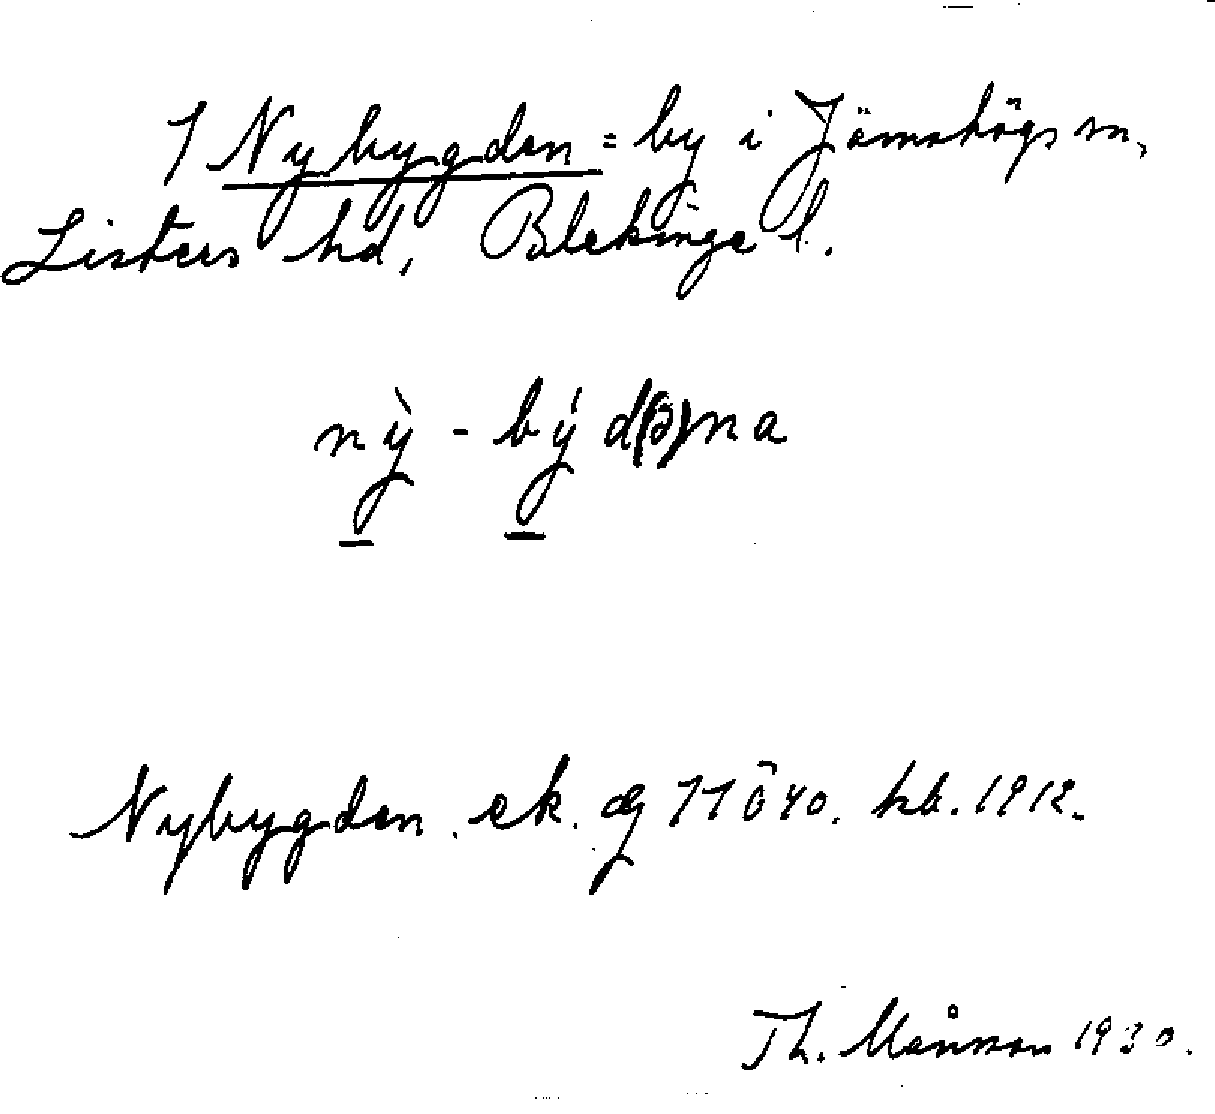 1 Nybygden = by i Jämshögs sn,
Listers hd, Blekinge l.
nỳ - bý d(ə)na
Nybygden. ek. æg 11 ö 40. hb. 1912.
Th. Månsson 1930.